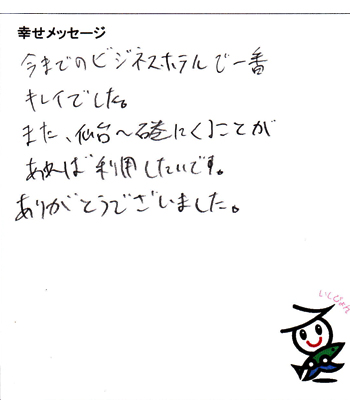 幸せメッセージ
今までのビジネスホテルで一番
キレイでした。
また、仙台〜石巻にくることが
あれば利用したいです。
ありがとうございました。
いしぴょん